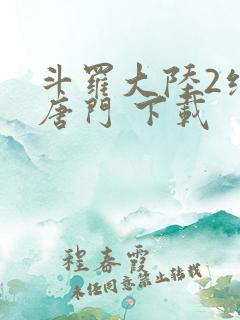 斗羅大陸2
唐門 下載
程春霞
未经同意禁止转载